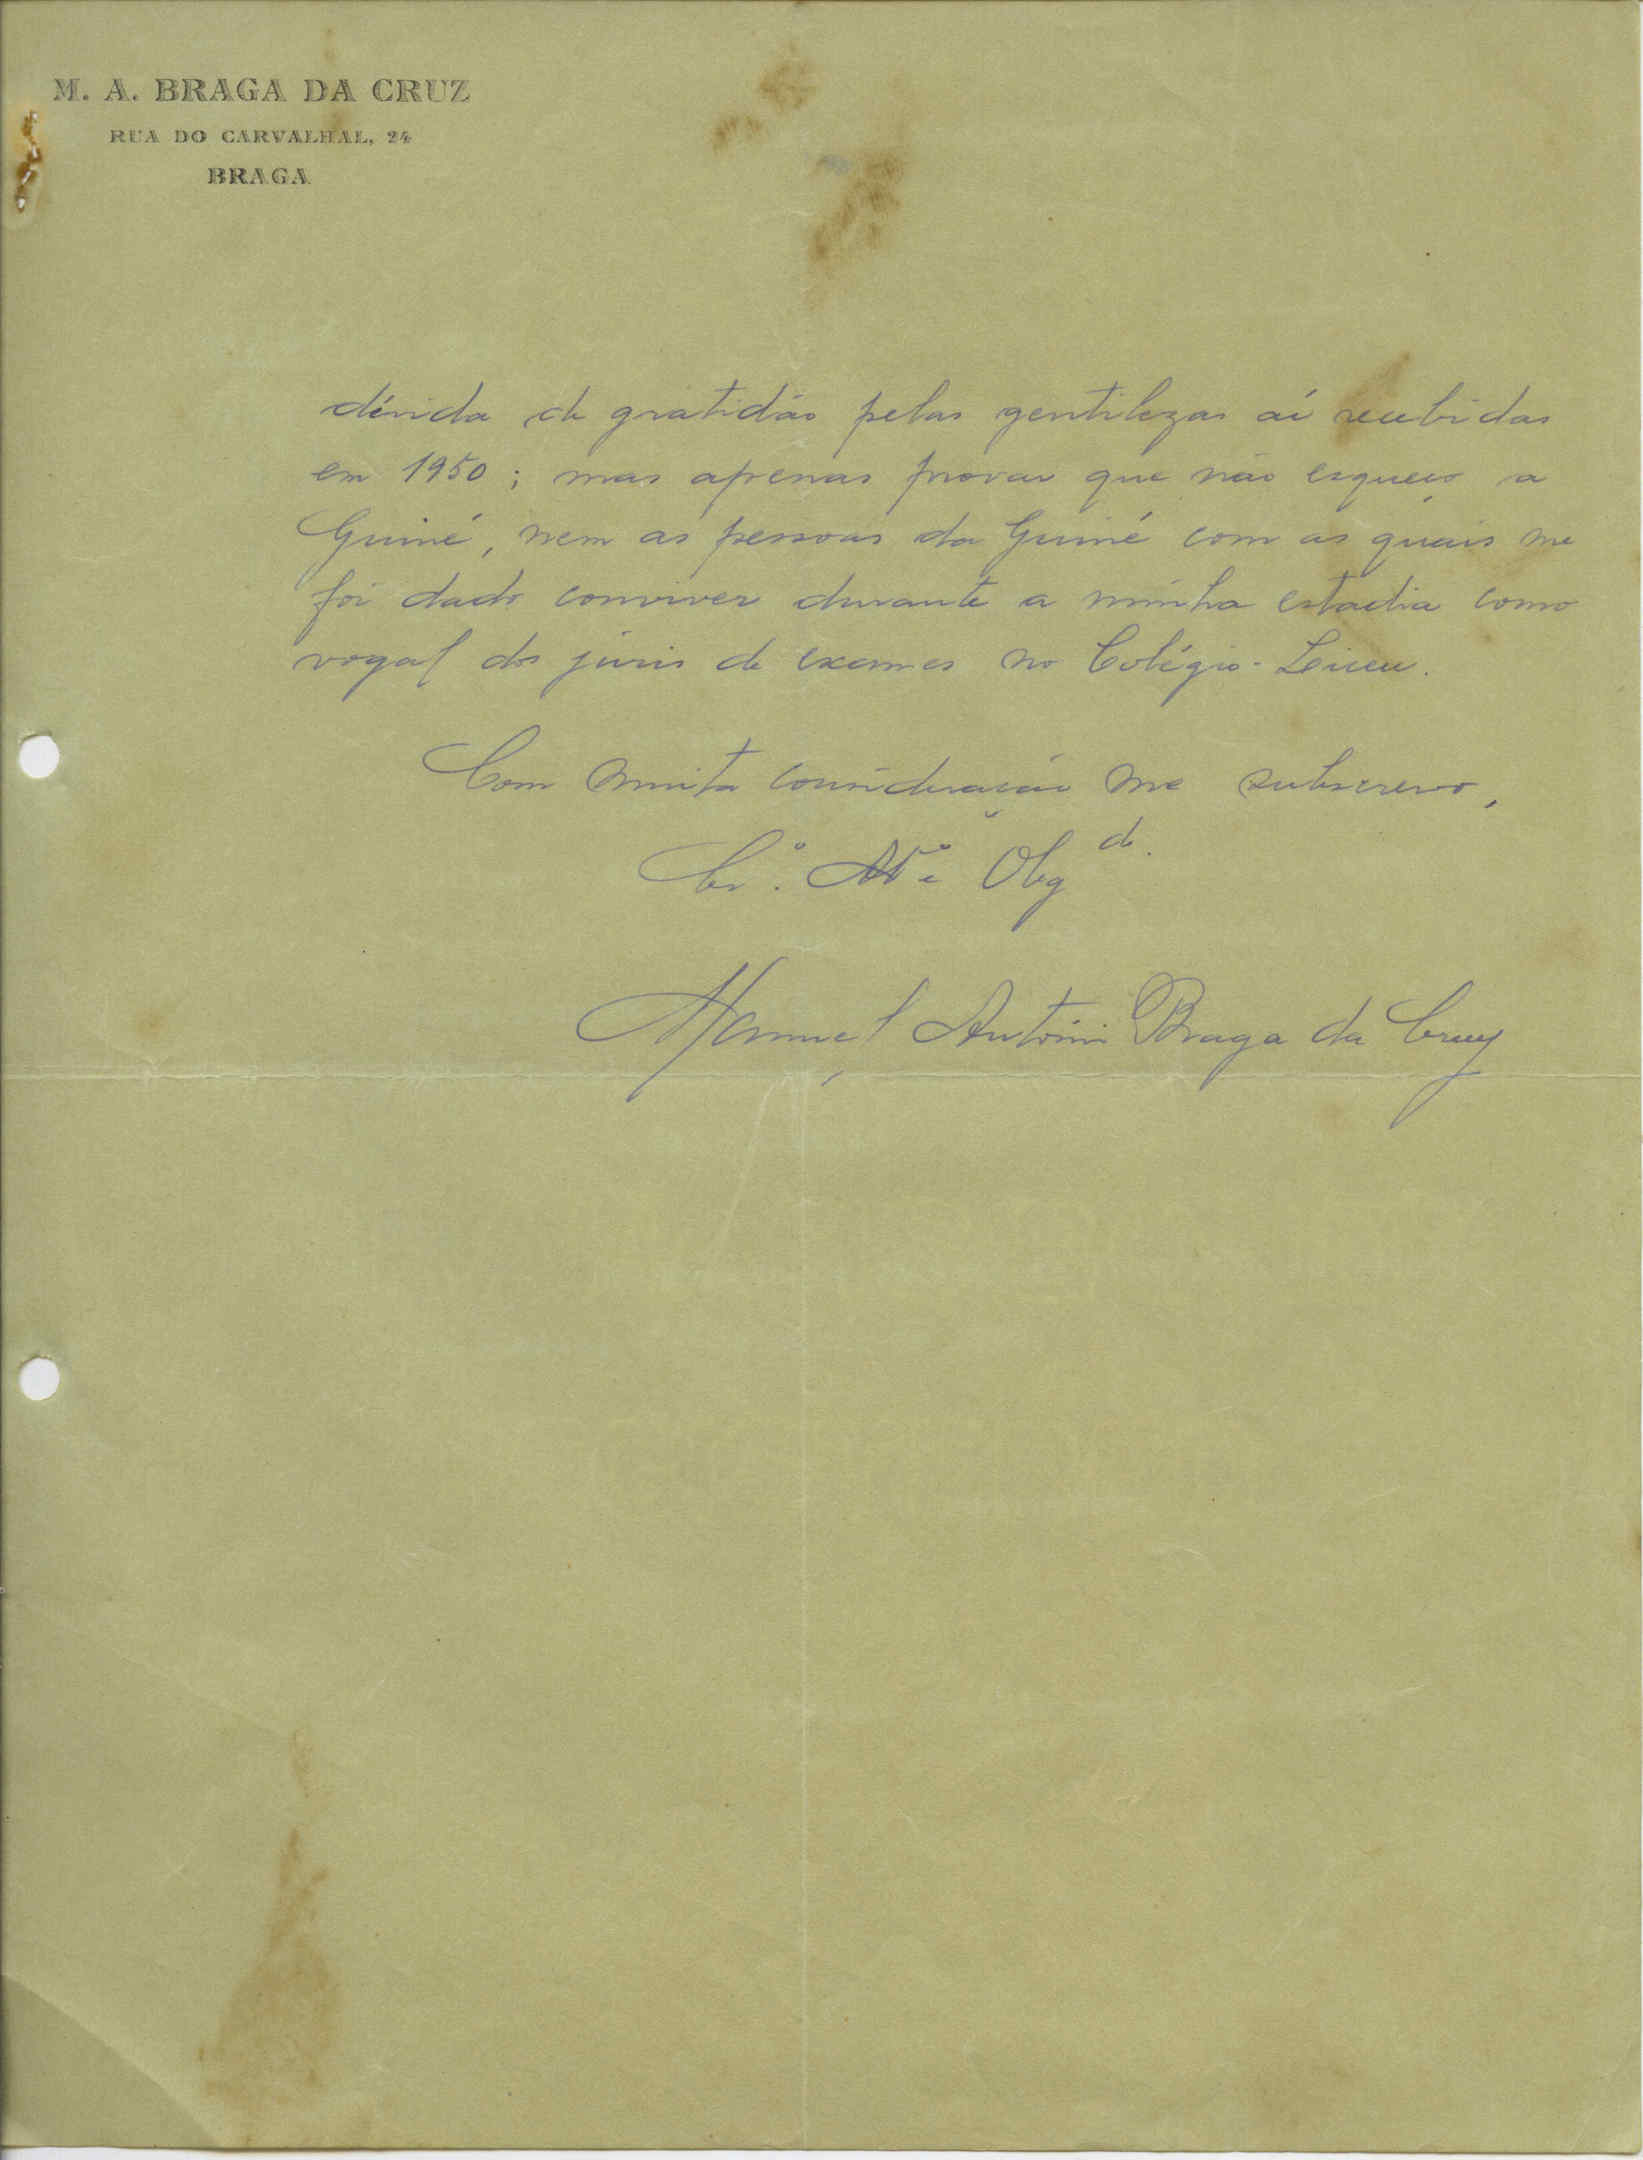 M. A. BRAGA DA CRUZ
RUA DO CARVALHAL, 24
BRAGA
dívida de gratidão pelas gentilezas aí recebidas
em 1950; mas apenas provar que não esqueço a
Guiné, nem as pessoas da Guiné com as quais me
foi dado conviver durante a minha estadia como
vogal dos júris de exames no Colégio-Liceu.
Com muita consideração me subscrevo,
Cr.º At.º e Obg.do
Manuel António Braga da Cruz